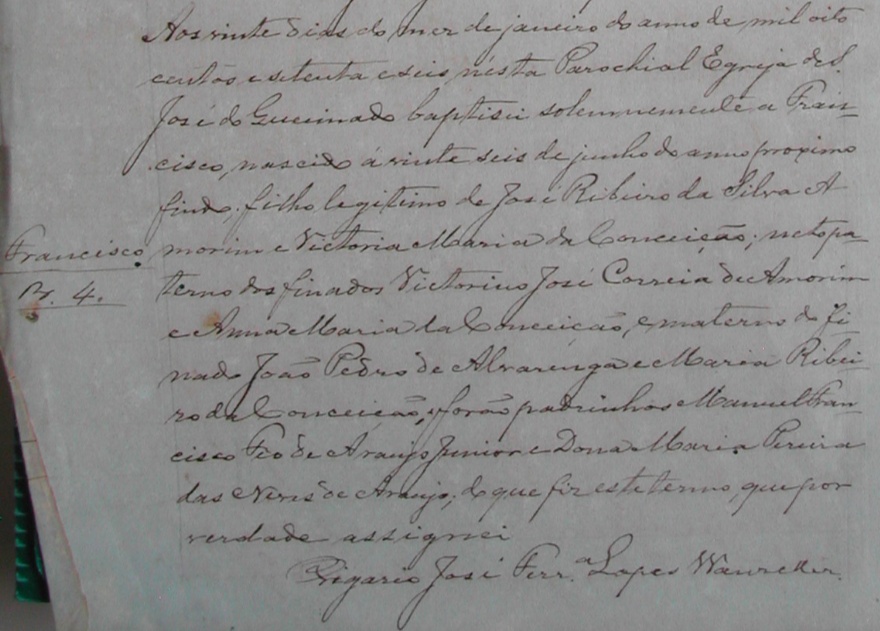 Aos vinte dias do mez de janeiro do anno de mil oito
centos e setenta e seis, nesta Parochial Egreja de S.
José do Queimado baptisei solemnemente a Fran-
cisco, nascido á vinte seis de junho do anno proximo
findo, filho legitimo de José Ribeiro da Silva A
morim e Victoria Maria da Conceição; neto pa-
terno dos finados Victorino José Correia de Amorim
e Anna Maria da Conceição, e materno do fi
nado João Pedro de Alvarenga e Maria Ribei-
ro da Conceição; forão padrinhos Manuel Fran-
cisco Feo de Araujo Junior e Dona Maria Pereira
das Neves de Araujo; do que fiz este termo, que por
verdade assignei
Vigario José Ferr.ª Lopes
Francisco.
4.